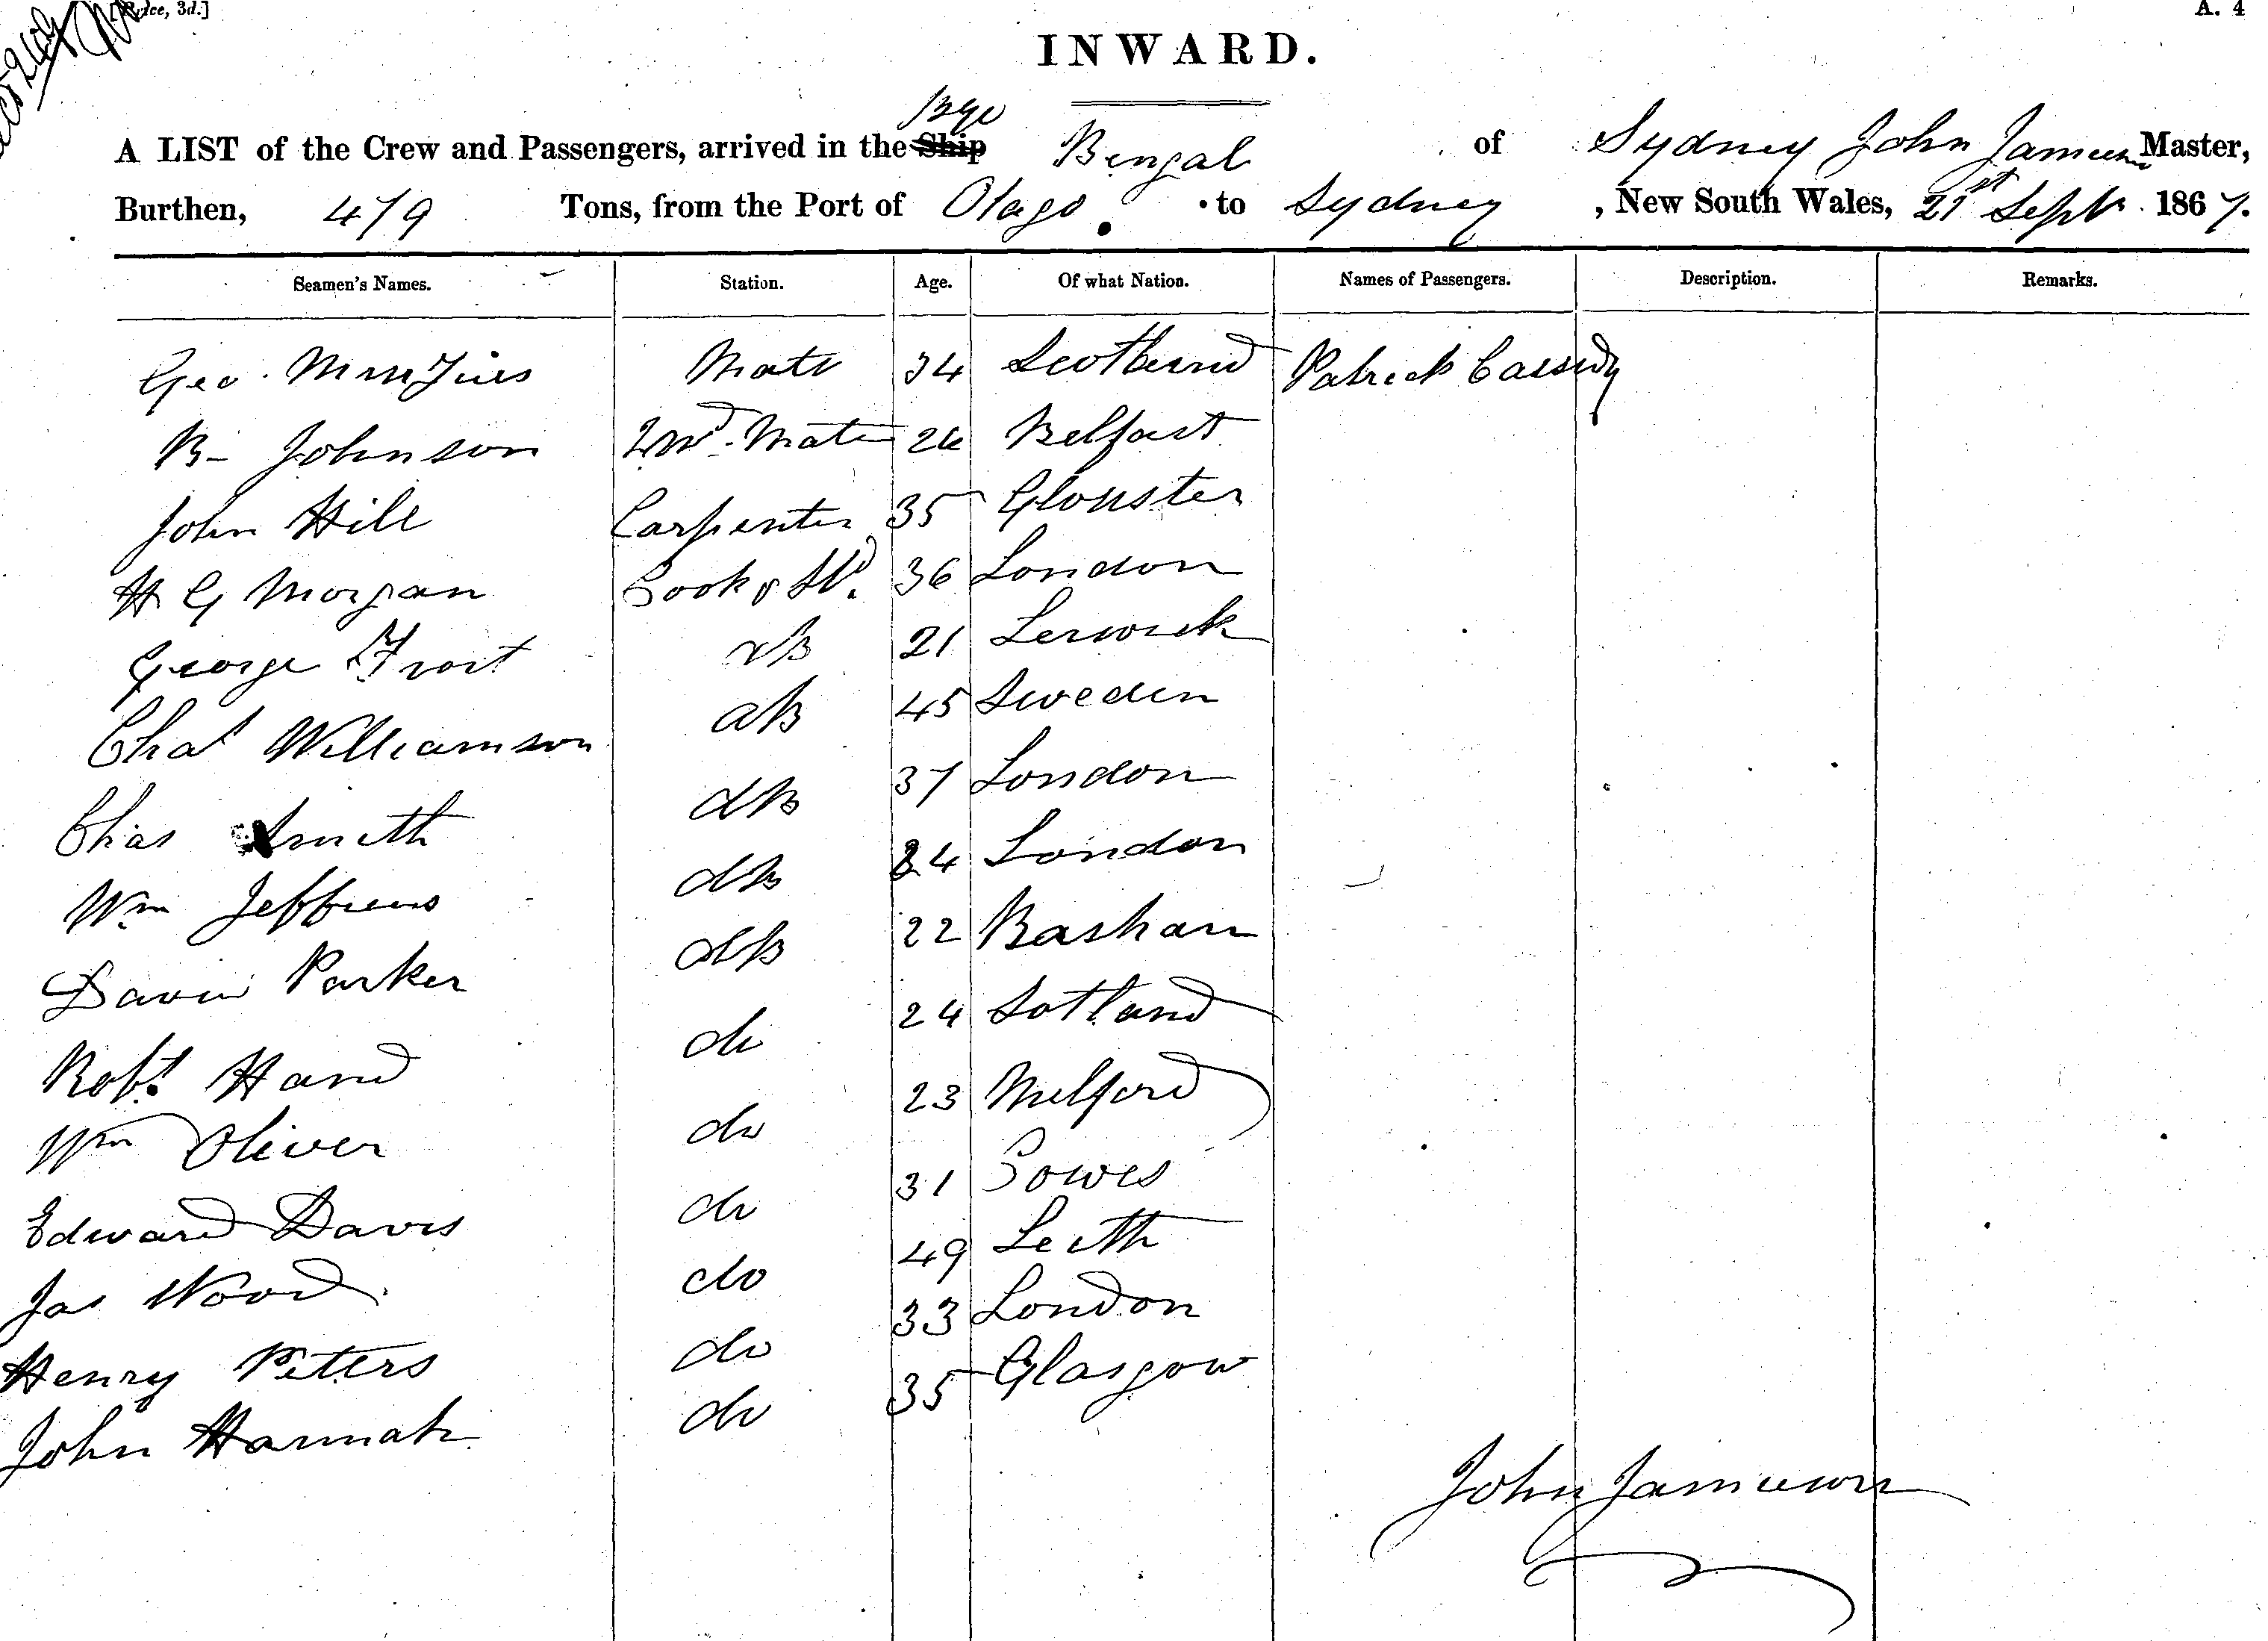 [Price, 3d.]
A. 4
INWARD.
Bge
A LIST of the Crew and Passengers, arrived in the Ship Bengal of Sydney John Jamieson Master,
Burthen, 479 Tons, from the Port of Otago. to Sydney, New South Wales, 21st Sept. 1867.
Seamen's Names. Station. Age. Of what Nation. Names of Passengers. Description. Remarks.
Geo. Menzies Mate 34 Scotland Patrick Cassidy
B- Johnson 2nd. Mate 26 Belfast
John Hill Carpenter 35 Glouster
H G Morgan Cook & Std. 36 London
George Frost AB 21 Lerwick
Chas Williamson AB 45 Sweden
Chas Smith AB 37 London
Wm Jeffries AB 24 London
David Parker AB 22 Basham
Robt. Hand do 24 Sotland
Wm Oliver do 23 Milford
Edward Davis do 31 Cowes
Jas Wood do 49 Leith
Henry Peters do 33 London
John Hannah do 35 Glasgow
John Jamieson